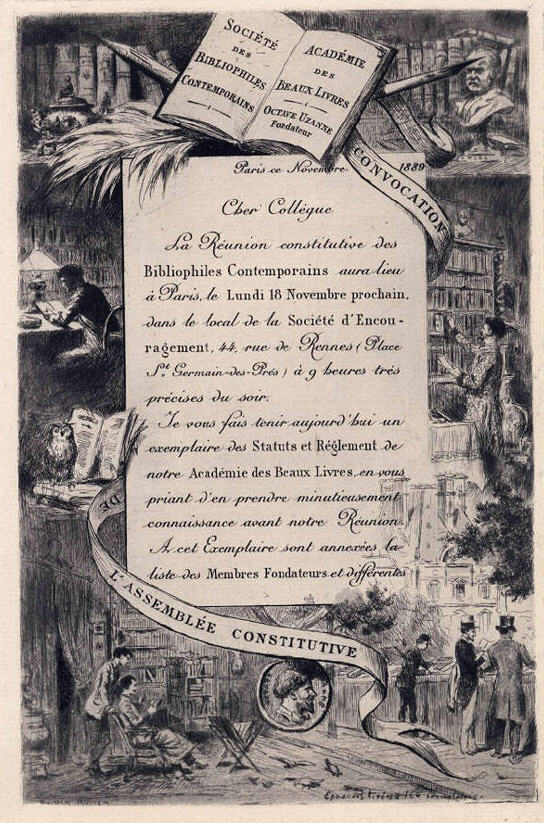 SOCIÉTÉ
DES
BIBLIOPHILES
CONTEMPORAINS
ACADÉMIE
DES
BEAUX LIVRES
OCTAVE UZANNE
Fondateur
CONVOCATION
Paris ce Novembre 1889
Cher Collégue
La Réunion constitutive des
Bibliophiles Contemporains aura lieu
à Paris, le Lundi 18 Novembre prochain,
dans le local de la Société d'Encou-
ragement, 44, rue de Rennes (Place
St. Germain-des-Prés) à 9 heures très
précises du soir.
Je vous fais tenir aujourd'hui un
exemplaire des Statuts et Réglement de
notre Académie des Beaux Livres, en vous
priant d'en prendre minutieusement
connaissance avant notre Réunion.
A cet Exemplaire sont annexées la
liste des Membres Fondateurs et différentes
DE
L'ASSEMBLÉE CONSTITUTIVE